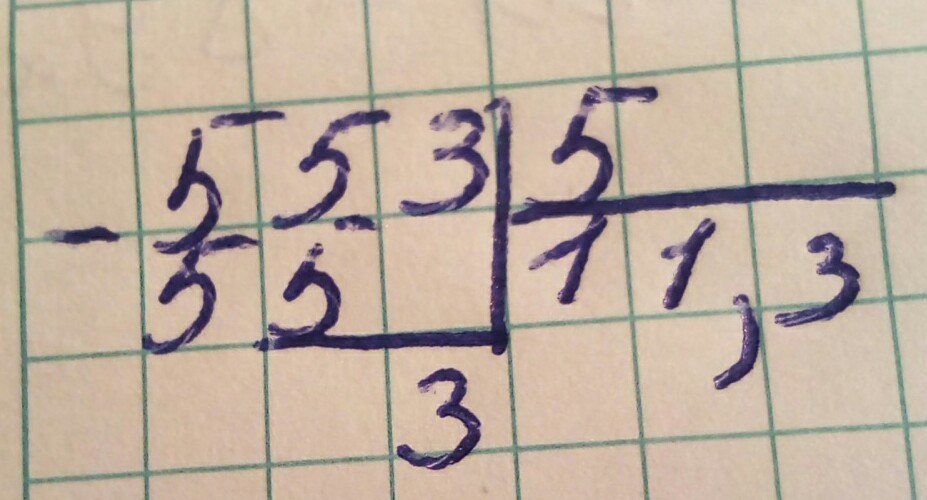 - 553 | 5
55 | 11,3
3